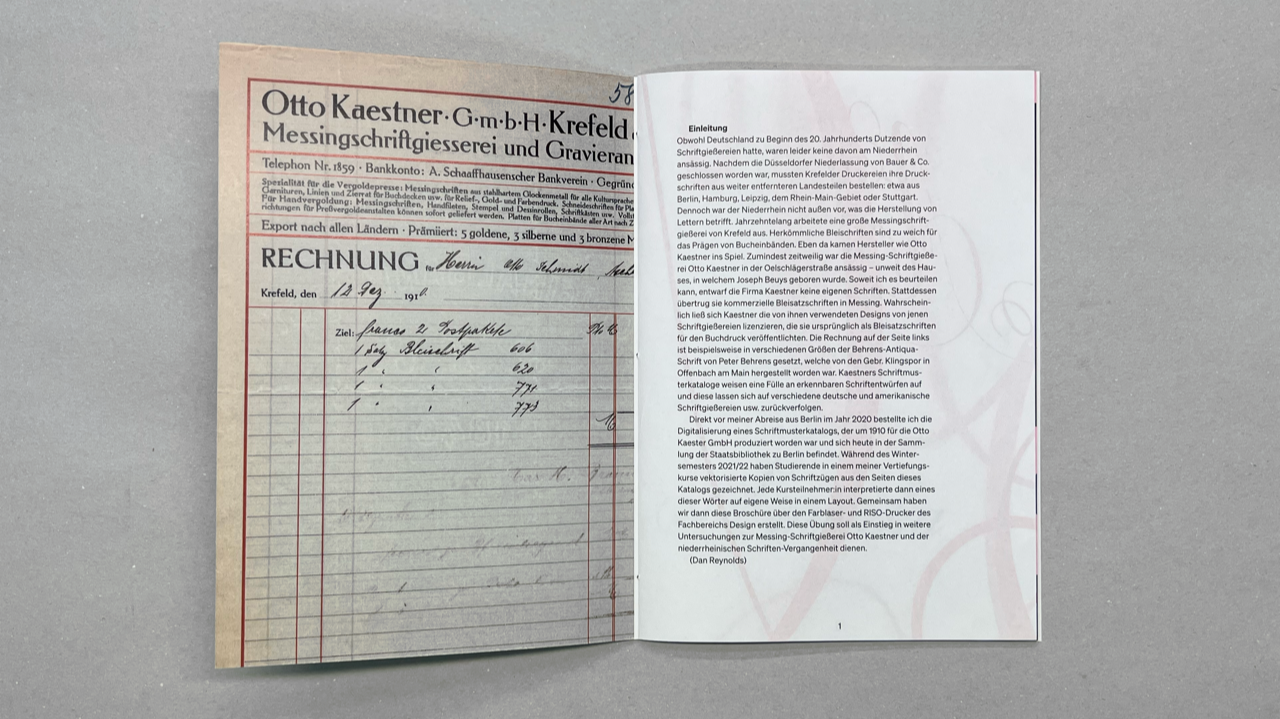 58
Otto Kaestner · G·m·b·H · Krefeld
Messingschriftgiesserei und Gravieran
Telephon Nr. 1859 · Bankkonto: A. Schaaffhausenscher Bankverein · Gegrün
Spezialität für die Vergoldepresse: Messingschriften aus stahlhartem Glockenmetall für alle Kultursprache
Garnituren, Linien und Zierrat für Buchdecken usw. für Relief-, Gold- und Farbendruck. Schneideschriften für Pla
Für Handvergoldung: Messingschriften, Handfileten, Stempel und Dessinrollen, Schriftkästen usw. Vollst
richtungen für Preßvergoldeanstalten können sofort geliefert werden. Platten für Bucheinbände aller Art nach Z
Export nach allen Ländern · Prämiiert: 5 goldene, 3 silberne und 3 bronzene M
RECHNUNG für Herrn Otto Schmidt
Krefeld, den 12 Dez. 191
Ziel: franco 2 Postpakete
1 Satz Bleischrift 606
1 " " 620
1 " " 771
1 " " 773
Einleitung
Obwohl Deutschland zu Beginn des 20. Jahrhunderts Dutzende von
Schriftgießereien hatte, waren leider keine davon am Niederrhein
ansässig. Nachdem die Düsseldorfer Niederlassung von Bauer & Co.
geschlossen worden war, mussten Krefelder Druckereien ihre Druck-
schriften aus weiter entfernteren Landesteilen bestellen: etwa aus
Berlin, Hamburg, Leipzig, dem Rhein-Main-Gebiet oder Stuttgart.
Dennoch war der Niederrhein nicht außen vor, was die Herstellung von
Lettern betrifft. Jahrzehntelang arbeitete eine große Messingschrift-
gießerei von Krefeld aus. Herkömmliche Bleischriften sind zu weich für
das Prägen von Bucheinbänden. Eben da kamen Hersteller wie Otto
Kaestner ins Spiel. Zumindest zeitweilig war die Messing-Schriftgieße-
rei Otto Kaestner in der Oelschlägerstraße ansässig – unweit des Hau-
ses, in welchem Joseph Beuys geboren wurde. Soweit ich es beurteilen
kann, entwarf die Firma Kaestner keine eigenen Schriften. Stattdessen
übertrug sie kommerzielle Bleisatzschriften in Messing. Wahrschein-
lich ließ sich Kaestner die von ihnen verwendeten Designs von jenen
Schriftgießereien lizenzieren, die sie ursprünglich als Bleisatzschriften
für den Buchdruck veröffentlichten. Die Rechnung auf der Seite links
ist beispielsweise in verschiedenen Größen der Behrens-Antiqua-
Schrift von Peter Behrens gesetzt, welche von den Gebr. Klingspor in
Offenbach am Main hergestellt worden war. Kaestners Schriftmus-
terkataloge weisen eine Fülle an erkennbaren Schriftentwürfen auf
und diese lassen sich auf verschiedene deutsche und amerikanische
Schriftgießereien usw. zurückverfolgen.
Direkt vor meiner Abreise aus Berlin im Jahr 2020 bestellte ich die
Digitalisierung eines Schriftmusterkatalogs, der um 1910 für die Otto
Kaester GmbH produziert worden war und sich heute in der Samm-
lung der Staatsbibliothek zu Berlin befindet. Während des Winter-
semesters 2021/22 haben Studierende in einem meiner Vertiefungs-
kurse vektorisierte Kopien von Schriftzügen aus den Seiten dieses
Katalogs gezeichnet. Jede Kursteilnehmer:in interpretierte dann eines
dieser Wörter auf eigene Weise in einem Layout. Gemeinsam haben
wir dann diese Broschüre über den Farblaser- und RISO-Drucker des
Fachbereichs Design erstellt. Diese Übung soll als Einstieg in weitere
Untersuchungen zur Messing-Schriftgießerei Otto Kaestner und der
niederrheinischen Schriften-Vergangenheit dienen.
(Dan Reynolds)
1